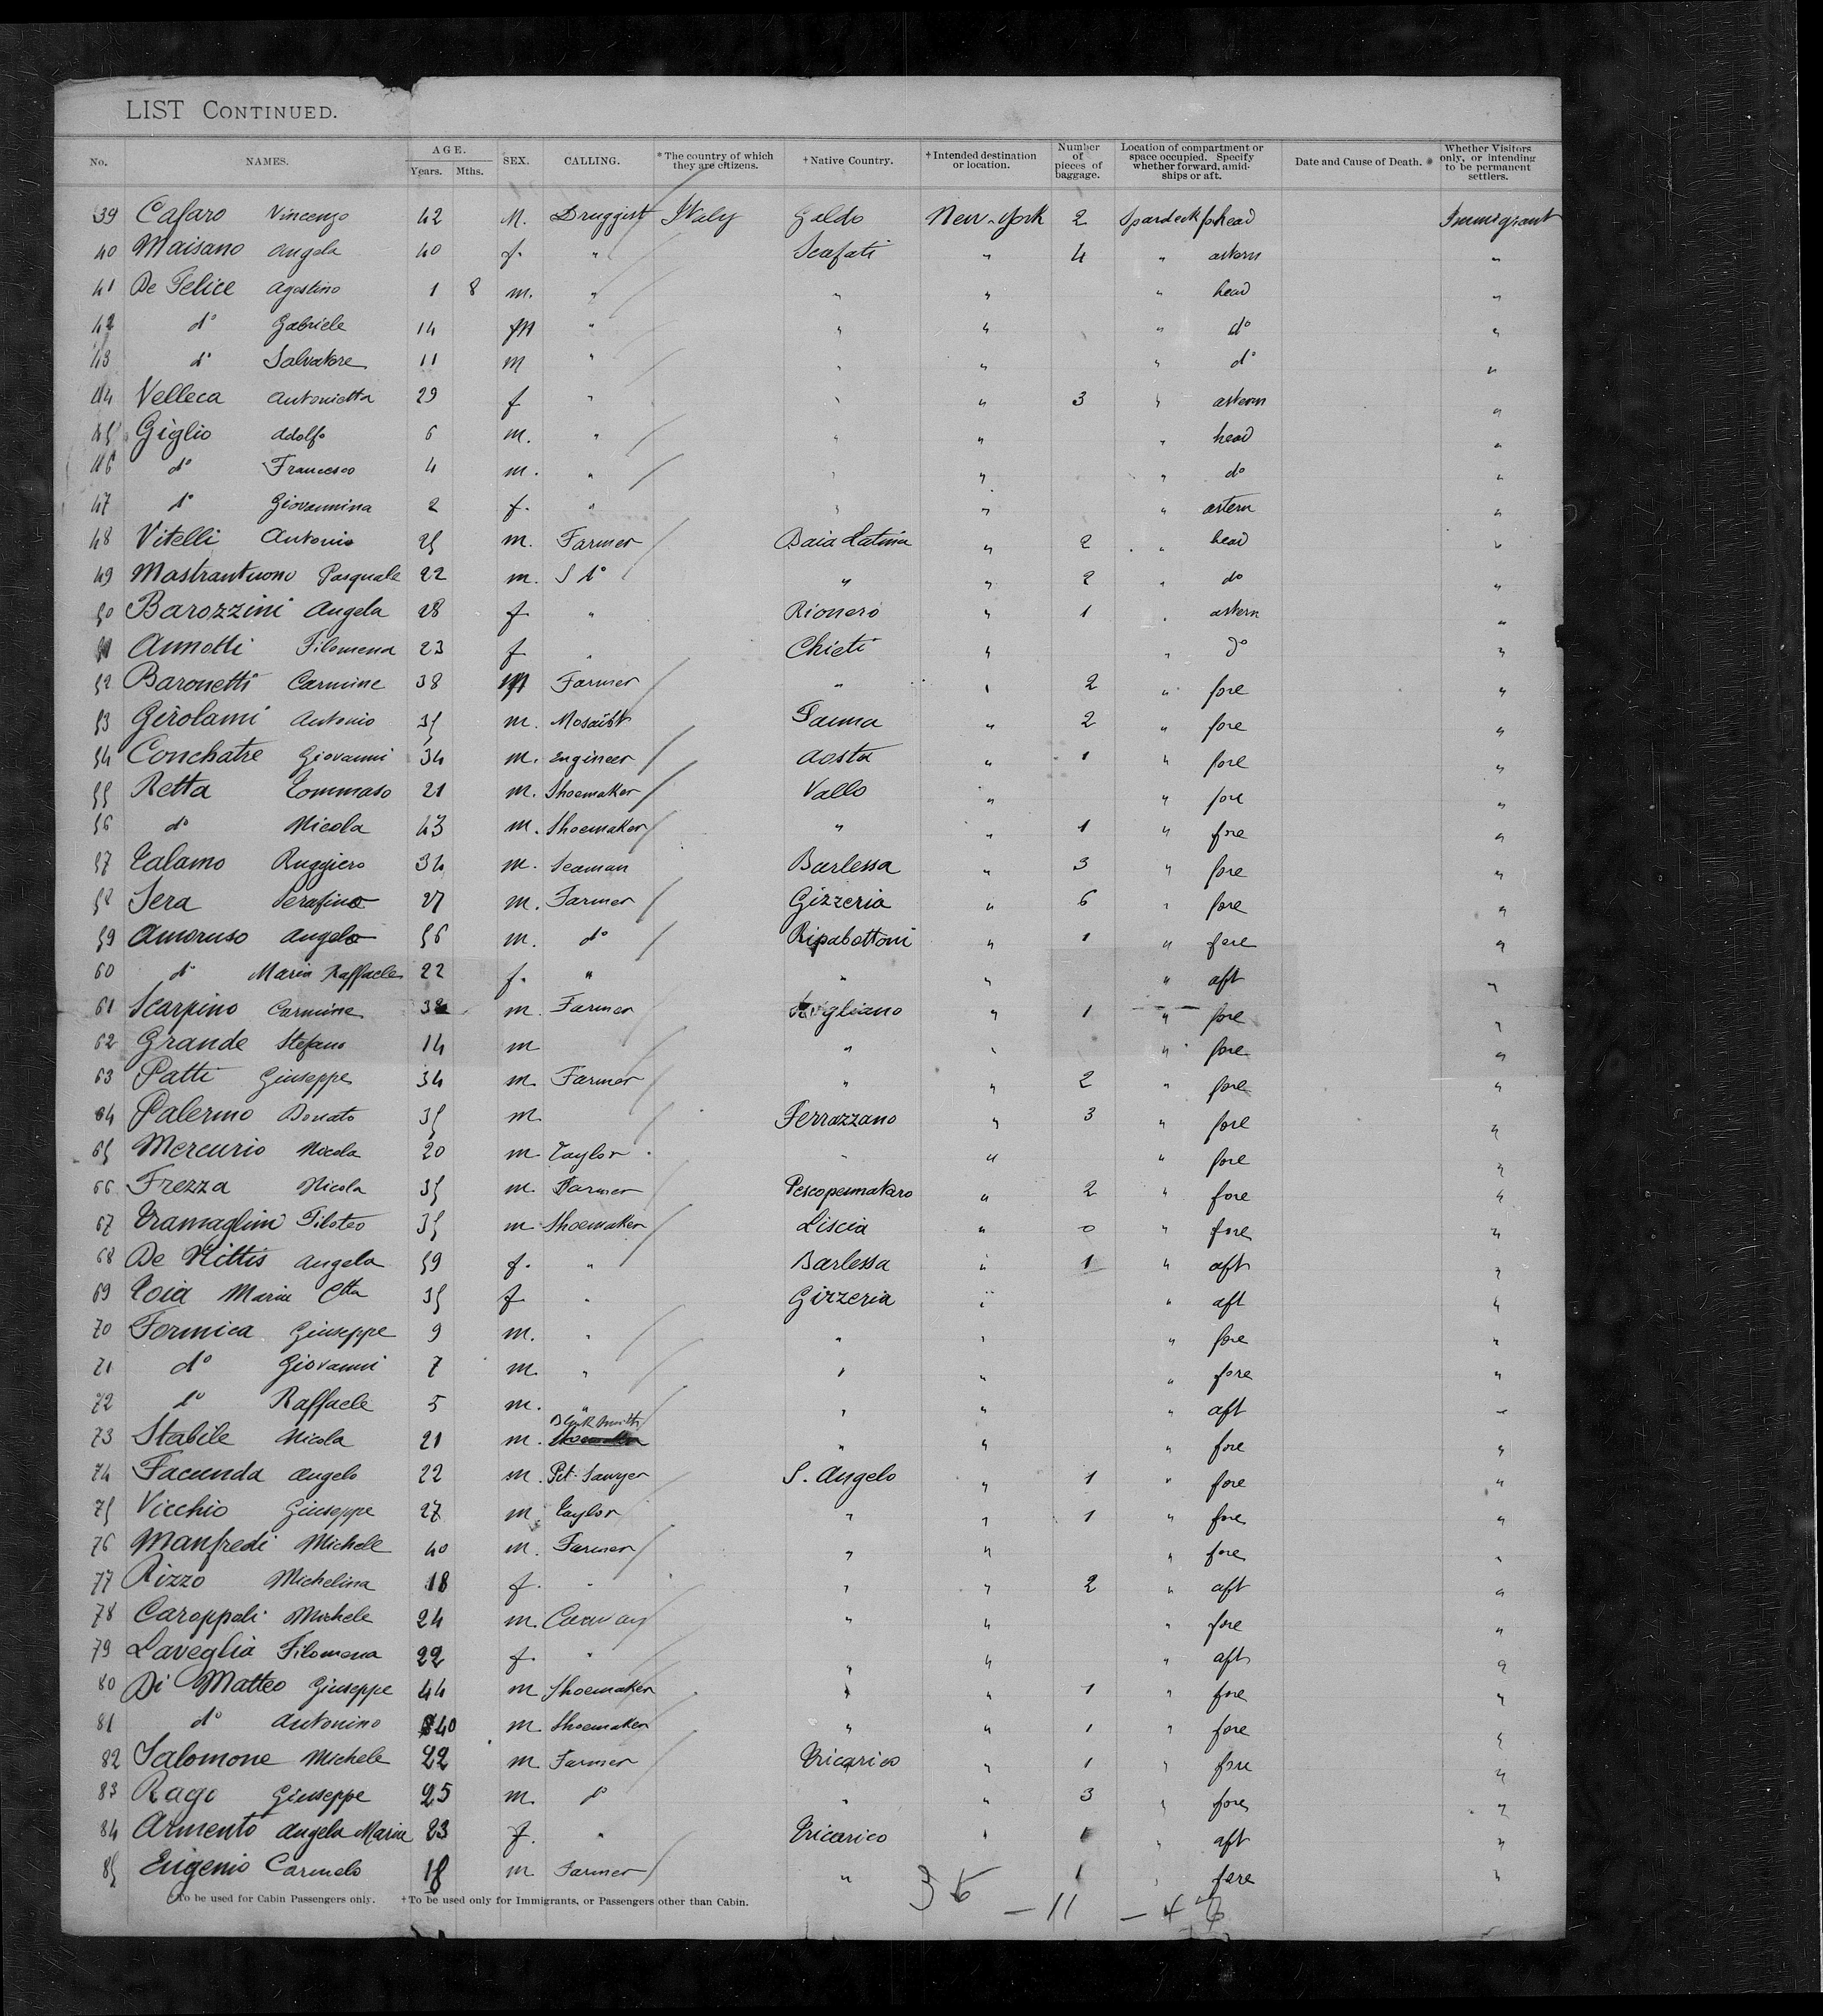 LIST CONTINUED.
No. NAMES. AGE. Years. Mths. SEX. CALLING. * The country of which they are citizens. †Native Country. †Intended destination or location. Number of pieces of baggage. Location of compartment or space occupied. Specify whether forward, amidships or aft. Date and Cause of Death. Whether Visitors only, or intending to be permanent settlers.
39 Cafaro Vincenzo 42 M. Druggist Italy Galdo New-York 2 Spardeck head Immigrant
40 Maisano Angela 40 f. " Scafati " 4 " astern "
41 De Felice Agostino 1 8 m. " " " " head "
42 do Gabriele 14 m " " " " do "
43 do Salvatore 11 m " " " " do "
44 Velleca Antonietta 29 f " " " 3 " astern "
45 Giglio Adolfo 6 m. " " " " head "
46 do Francesco 4 m. " " " " do "
47 do Giovannina 2 f. " " " " astern "
48 Vitelli Antonio 25 m. Farmer Baia Latina " 2 " head "
49 Mastrantuono Pasquale 22 m. do " " 2 " do "
50 Barozzini Angela 28 f " Rionero " 1 " astern "
51 Annotti Filomena 23 f " Chieti " " do "
52 Baronetti Carmine 38 m Farmer " " 2 " fore "
53 Girolami Antonio 35 m. Mosaïst Fanna " 2 " fore "
54 Conchatre Giovanni 34 m. Engineer Aosta " 1 " fore "
55 Retta Tommaso 21 m. Shoemaker Vallo " " fore "
56 do Nicola 43 m. Shoemaker " " 1 " fore "
57 Talamo Ruggiero 34 m. Seaman Barlessa " 3 " fore "
58 Sera Serafino 27 m. Farmer Gizzeria " 6 " fore "
59 Amoruso Angelo 56 m. do Ripabottoni " 1 " fore "
60 do Maria Raffaele 22 f. " " " " aft "
61 Scarpino Carmine 38 m. Farmer " 1 " fore "
62 Grande Stefano 14 m " " " fore "
63 Patti Giuseppe 34 m. Farmer " " 2 " fore "
64 Palermo Donato 35 m. Ferrazzano " 3 " fore "
65 Mercurio Nicola 20 m. Taylor " " " fore "
66 Frezza Nicola 35 m. Farmer Pescopennataro " 2 " fore "
67 Tramaglini Filoteo 35 m. Shoemaker Liscia " 0 " fore "
68 De Nittis Angela 59 f. " Barlessa " 1 " aft "
69 Toia Maria Etta 35 f " Gizzeria " " aft "
70 Formica Giuseppe 9 m. " " " " fore "
71 do Giovanni 7 m. " " " " fore "
72 do Raffaele 5 m. " " " " aft "
73 Stabile Nicola 21 m. Blacksmith " " " fore "
74 Facunda Angelo 22 m. Pit-Sawyer S. Angelo " 1 " fore "
75 Vicchio Giuseppe 27 m. Taylor " " 1 " fore "
76 Manfredi Michele 40 m. Farmer " " " fore "
77 Rizzo Michelina 18 f. " " " 2 " aft "
78 Caroppoli Michele 24 m. " " " fore "
79 Laveglia Filomena 22 f. " " " " aft "
80 Di Matteo Giuseppe 44 m. Shoemaker " " 1 " fore "
81 do Antonino 40 m. Shoemaker " " 1 " fore "
82 Salomone Michele 22 m. Farmer Tricarico " 1 " fore "
83 Rago Giuseppe 25 m. do " " 3 " fore "
84 Armento Angela Maria 23 f. " Tricarico " 1 " aft "
85 Eugenio Carmelo 18 m Farmer " 1 " fore "
*To be used for Cabin Passengers only. †To be used only for Immigrants, or Passengers other than Cabin.
36 - 11 - 47